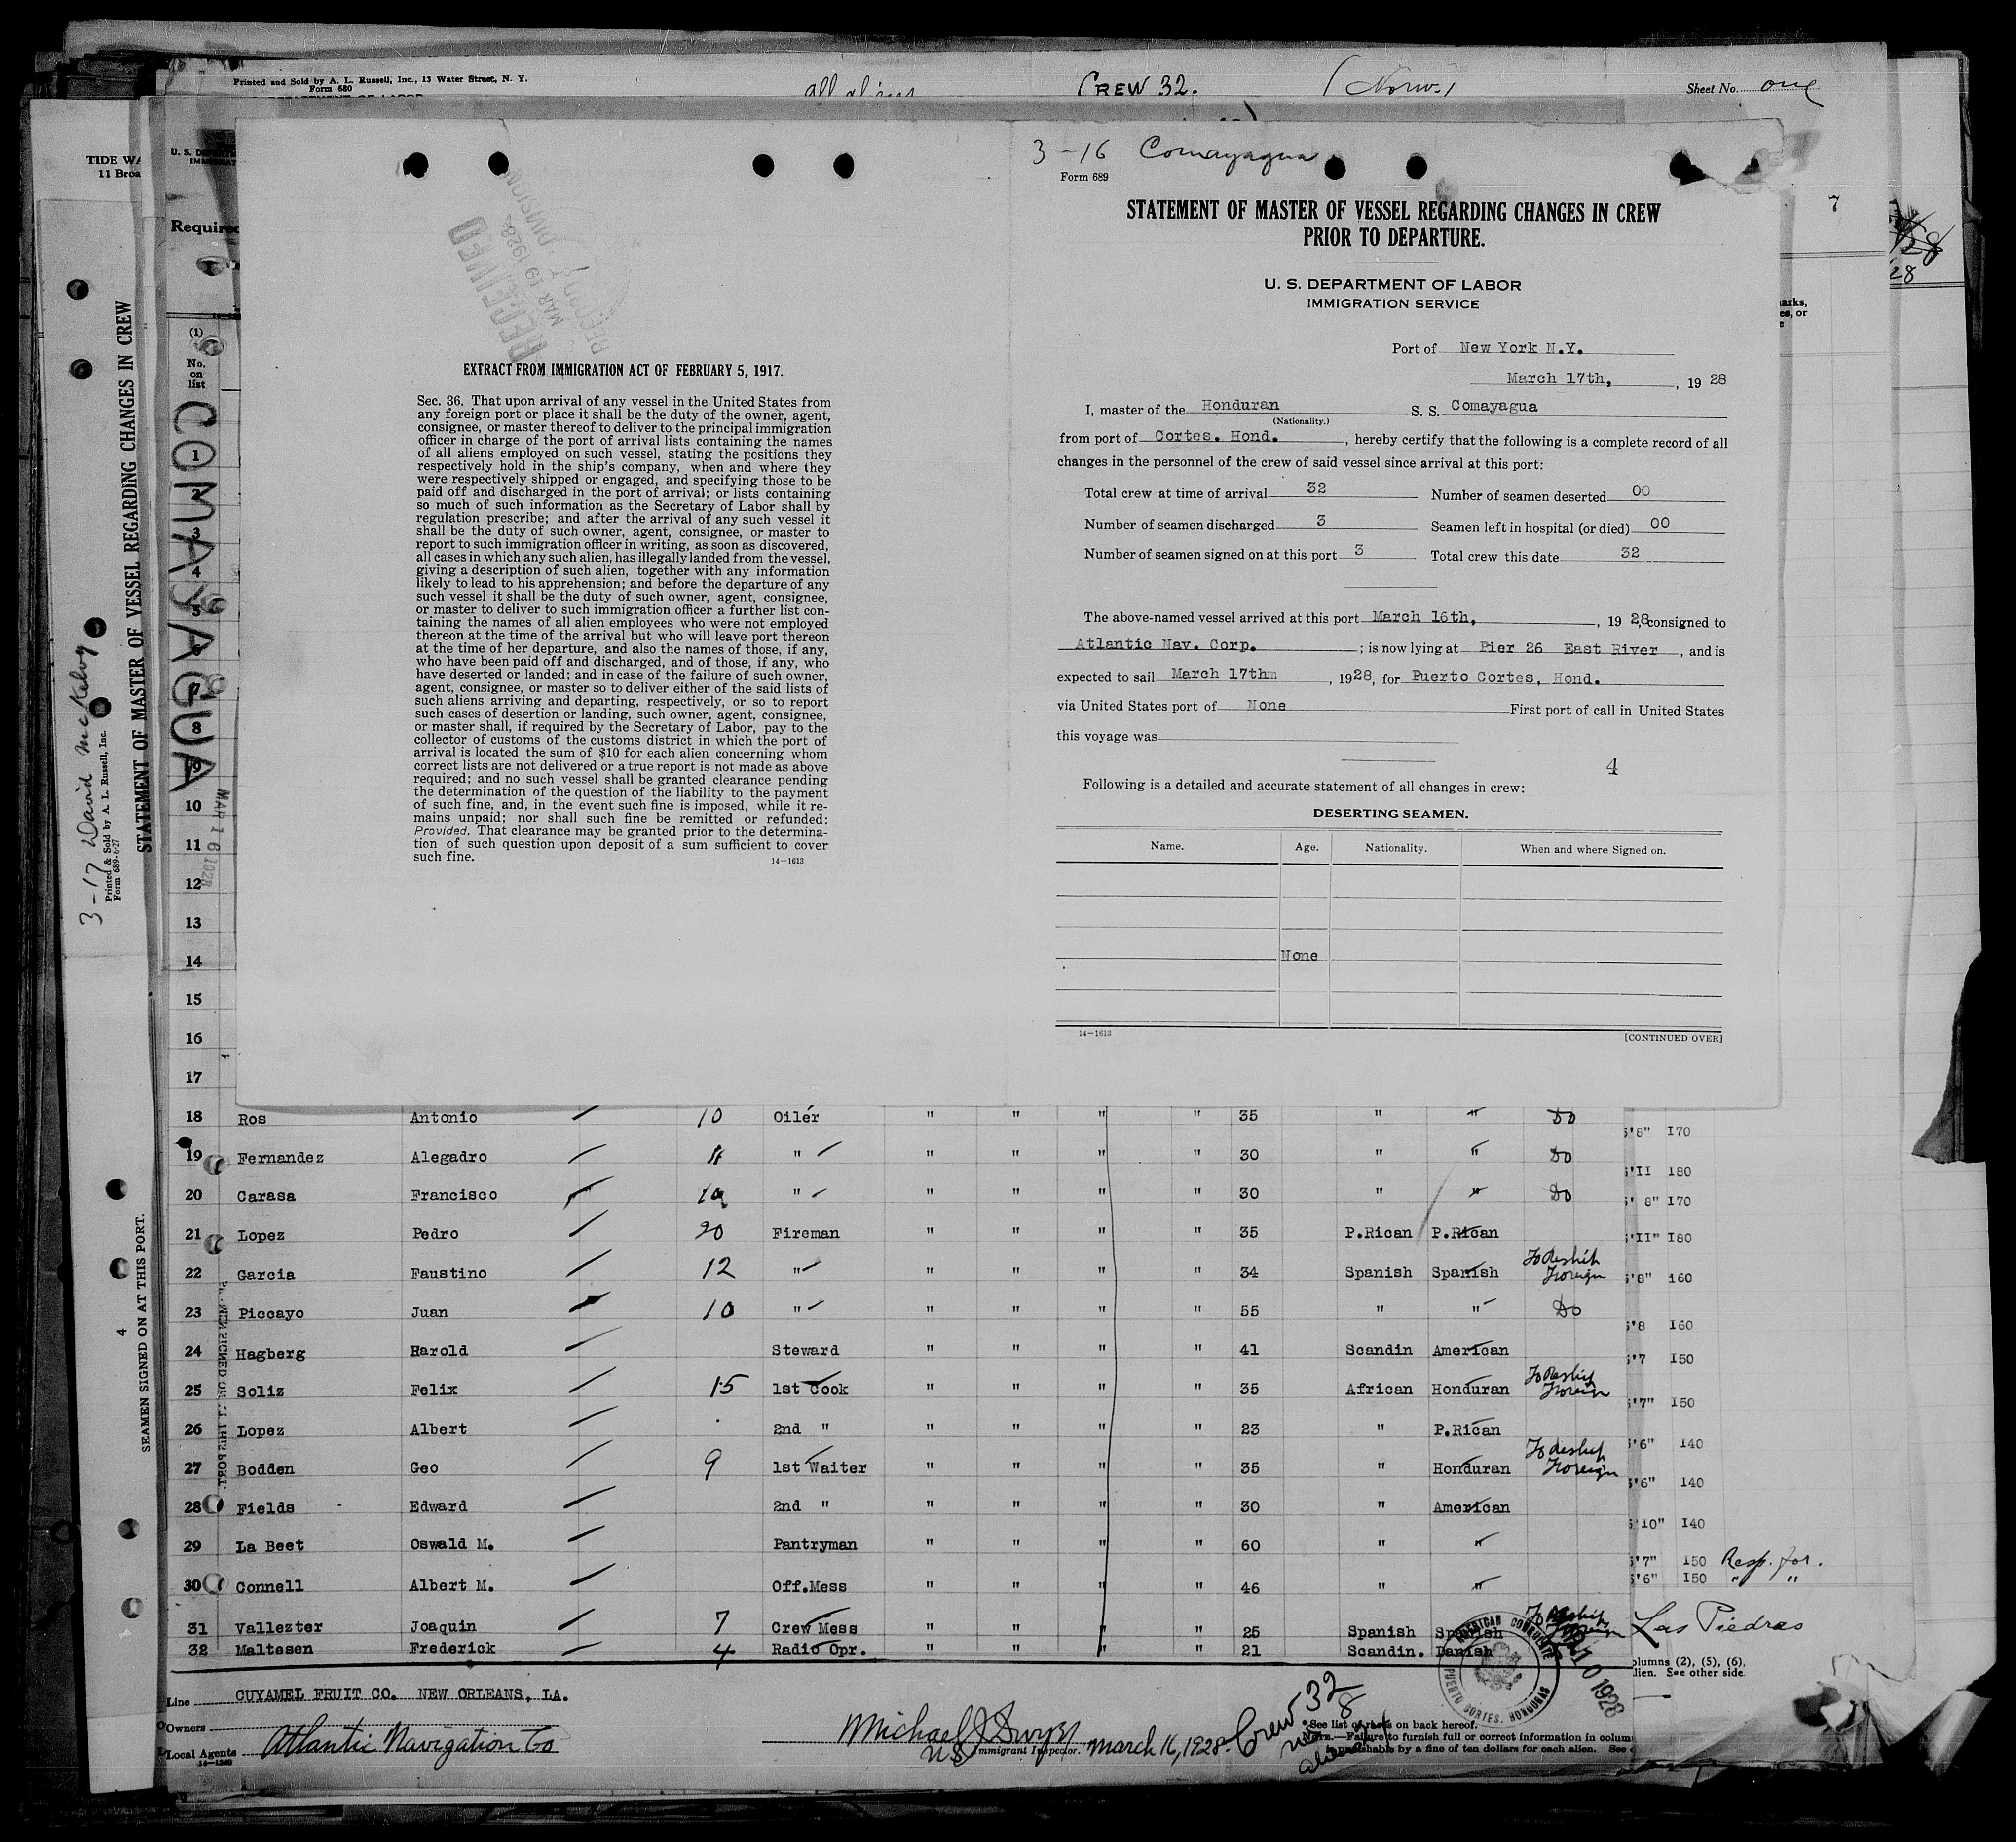 Printed and Sold by A. L. Russell, Inc., 13 Water Street, N. Y.
Form 680
all aliens
CREW 32.
(Norw.)
Sheet No. one
TIDE WA
11 Broa
Required
(1)
No.
on
list
COMAYAGUA
MAR 16 1928
3-17 David McKelvy
Printed & Sold by A. L. Russell, Inc.
Form 689-6-27
STATEMENT OF MASTER OF VESSEL REGARDING CHANGES IN CREW
SEAMEN SIGNED ON AT THIS PORT.
4
RECEIVED
MAR 19 1928
DIVISION
EXTRACT FROM IMMIGRATION ACT OF FEBRUARY 5, 1917.
Sec. 36. That upon arrival of any vessel in the United States from
any foreign port or place it shall be the duty of the owner, agent,
consignee, or master thereof to deliver to the principal immigration
officer in charge of the port of arrival lists containing the names
of all aliens employed on such vessel, stating the positions they
respectively hold in the ship's company, when and where they
were respectively shipped or engaged, and specifying those to be
paid off and discharged in the port of arrival; or lists containing
so much of such information as the Secretary of Labor shall by
regulation prescribe; and after the arrival of any such vessel it
shall be the duty of such owner, agent, consignee, or master to
report to such immigration officer in writing, as soon as discovered,
all cases in which any such alien, has illegally landed from the vessel,
giving a description of such alien, together with any information
likely to lead to his apprehension; and before the departure of any
such vessel it shall be the duty of such owner, agent, consignee,
or master to deliver to such immigration officer a further list con-
taining the names of all alien employees who were not employed
thereon at the time of the arrival but who will leave port thereon
at the time of her departure, and also the names of those, if any,
who have been paid off and discharged, and of those, if any, who
have deserted or landed; and in case of the failure of such owner,
agent, consignee, or master so to deliver either of the said lists of
such aliens arriving and departing, respectively, or so to report
such cases of desertion or landing, such owner, agent, consignee,
or master shall, if required by the Secretary of Labor, pay to the
collector of customs of the customs district in which the port of
arrival is located the sum of $10 for each alien concerning whom
correct lists are not delivered or a true report is not made as above
required; and no such vessel shall be granted clearance pending
the determination of the question of the liability to the payment
of such fine, and, in the event such fine is imposed, while it re-
mains unpaid; nor shall such fine be remitted or refunded:
Provided. That clearance may be granted prior to the determina-
tion of such question upon deposit of a sum sufficient to cover
such fine.
14—1613
3-16 Comayagua
Form 689
STATEMENT OF MASTER OF VESSEL REGARDING CHANGES IN CREW
PRIOR TO DEPARTURE.
U. S. DEPARTMENT OF LABOR
IMMIGRATION SERVICE
Port of New York N.Y.
March 17th, , 19 28
I, master of the Honduran S. S. Comayagua
(Nationality.)
from port of Cortes. Hond. , hereby certify that the following is a complete record of all
changes in the personnel of the crew of said vessel since arrival at this port:
Total crew at time of arrival 32 Number of seamen deserted 00
Number of seamen discharged 3 Seamen left in hospital (or died) 00
Number of seamen signed on at this port 3 Total crew this date 32
The above-named vessel arrived at this port March 16th, , 19 28, consigned to
Atlantic Nav. Corp. ; is now lying at Pier 26 East River , and is
expected to sail March 17thm , 1928, for Puerto Cortes, Hond.
via United States port of None First port of call in United States
this voyage was
4
Following is a detailed and accurate statement of all changes in crew:
DESERTING SEAMEN.
Name. Age. Nationality. When and where Signed on.
None
14—1613 [CONTINUED OVER]
1
2
3
4
5
8
9
10
11
12
13
14
15
16
17
18 Ros Antonio 10 Oiler " " " " 35 " " Do 5'8" 170
19 Fernandez Alegadro 11 " " " " " 30 " " Do 5'II 180
20 Carasa Francisco 10 " " " " " 30 " " Do 5' 8" I70
21 Lopez Pedro 20 Fireman " " " " 35 P.Rican P.Rican 5'II" I80
22 Garcia Faustino 12 " " " " " 34 Spanish Spanish To Reship Foreign 5'8" 160
23 Piccayo Juan 10 " " " " " 55 " " Do 5'8 I60
24 Hagberg Harold Steward " " " " 41 Scandin American 5'7 I50
25 Soliz Felix 15 1st Cook " " " " 35 African Honduran To Reship Foreign 5'7" I50
26 Lopez Albert 2nd " " " " " 23 " P.Rican 5'6" I40
27 Bodden Geo 9 1st Waiter " " " " 35 " Honduran To Reship Foreign 5'6" I40
28 Fields Edward 2nd " " " " " 30 " American 5'10" I40
29 La Beet Oswald M. Pantryman " " " " 60 " " 5'7" 150 Resp. for.
30 Connell Albert M. Off.Mess " " " " 46 " " 5'6" I50 " "
31 Vallezter Joaquin 7 Crew Mess " " " " 25 Spanish Spanish To Reship Foreign
32 Maltesen Frederick 4 Radio Opr. " " " " 21 Scandin. Danish
Las Piedras
AMERICAN CONSULATE
PUERTO CORTES, HONDURAS
10 1928
olumns (2), (5), (6),
lien. See other side
Line CUYAMEL FRUIT CO. NEW ORLEANS, LA.
Owners
Local Agents Atlantic Navigation Co
14—1240
Michael J Dwyer
US Immigrant Inspector. March 16, 1928.
Crew 32
8
*See list of races on back hereof.
NOTE.—Failure to furnish full or correct information in colum
is punishable by a fine of ten dollars for each alien. See